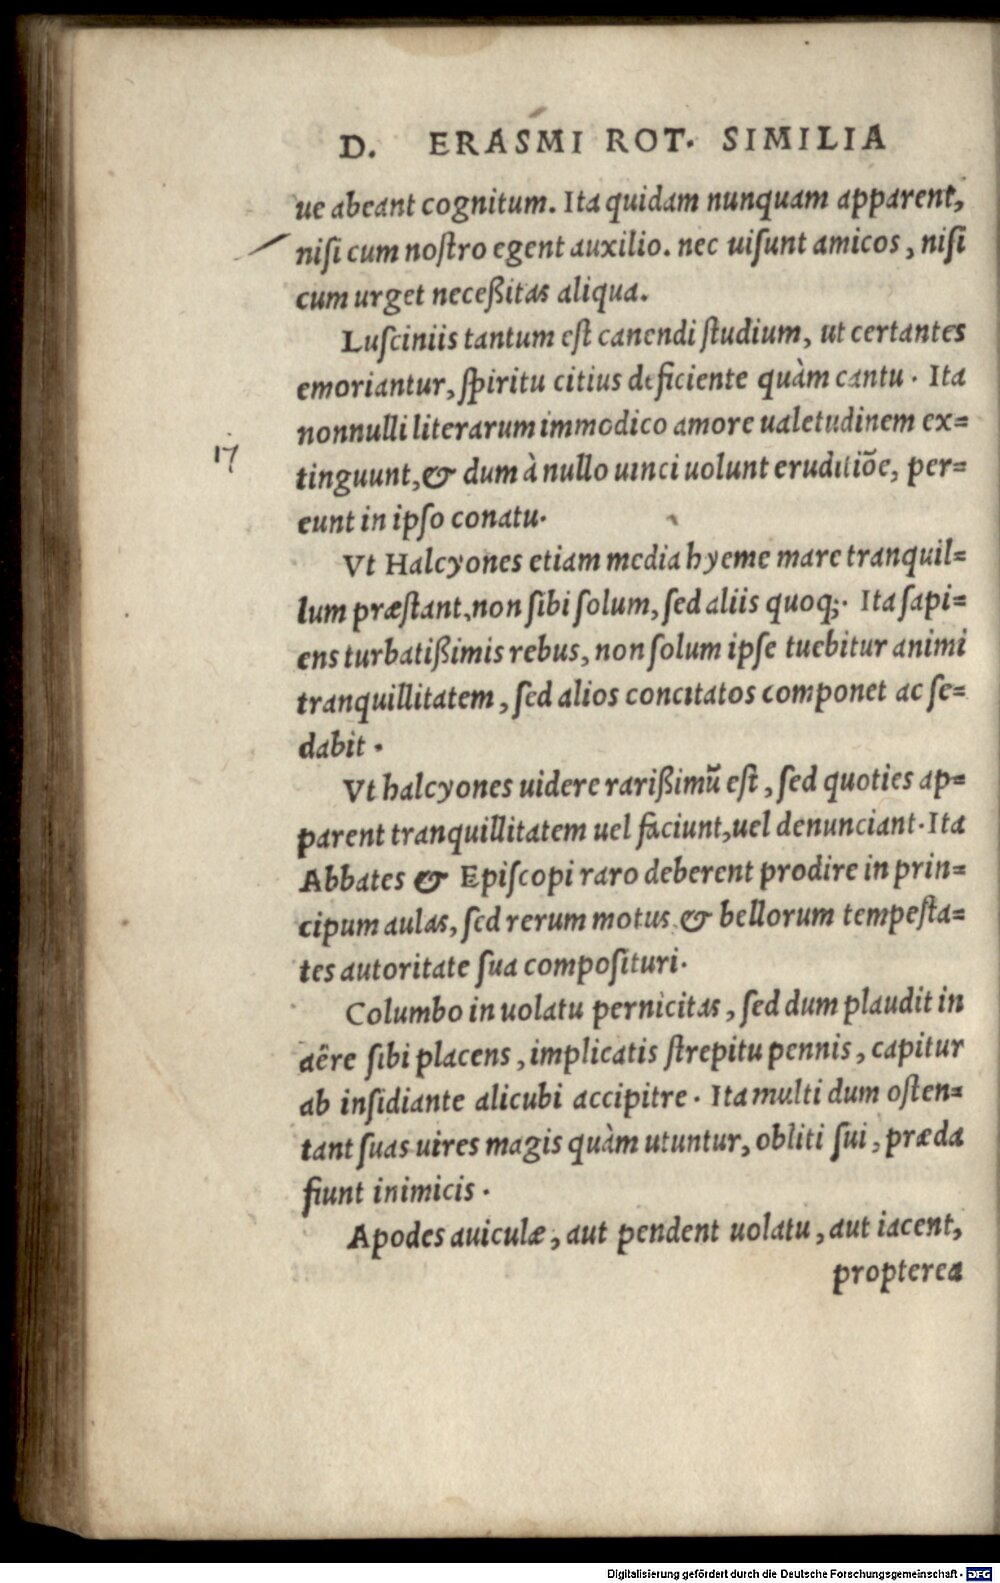 D. ERASMI ROT. SIMILIA
ue abeant cognitum. Ita quidam nunquam apparent,
niſi cum noſtro egent auxilio. nec uiſunt amicos, niſi
cum urget neceßitas aliqua.
Luſciniis tantum eſt canendi ſtudium, ut certantes
emoriantur, ſpiritu citius deficiente quàm cantu. Ita
nonnulli literarum immodico amore ualetudinem ex=
17
tinguunt, & dum à nullo uinci uolunt eruditiõe, per=
eunt in ipſo conatu.
Vt Halcyones etiam media hyeme mare tranquil=
lum præſtant, non ſibi ſolum, ſed aliis quoq;. Ita ſapi=
ens turbatißimis rebus, non ſolum ipſe tuebitur animi
tranquillitatem, ſed alios concitatos componet ac ſe=
dabit.
Vt halcyones uidere rarißimũ eſt, ſed quoties ap=
parent tranquillitatem uel faciunt, uel denunciant. Ita
Abbates & Epiſcopi raro deberent prodire in prin=
cipum aulas, ſed rerum motus & bellorum tempeſta=
tes autoritate ſua compoſituri.
Columbo in uolatu pernicitas, ſed dum plaudit in
aêre ſibi placens, implicatis ſtrepitu pennis, capitur
ab inſidiante alicubi accipitre. Ita multi dum oſten=
tant ſuas uires magis quàm utuntur, obliti ſui, præda
fiunt inimicis.
Apodes auiculæ, aut pendent uolatu, aut iacent,
propterea
Digitalisierung gefördert durch die Deutsche Forschungsgemeinschaft - DFG